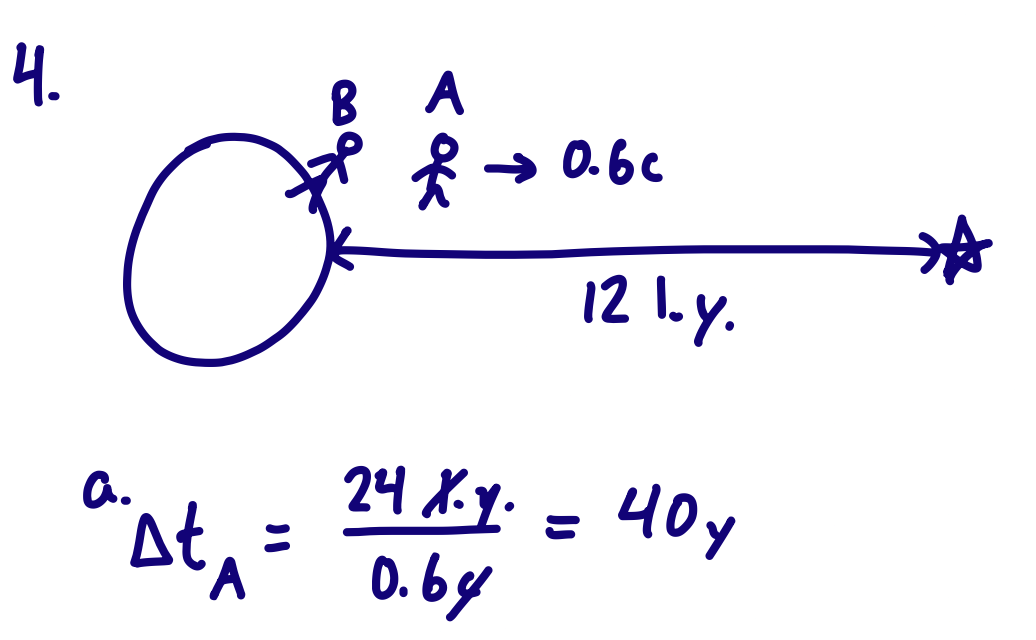 4.
B A
→ 0.6c
12 l.y.
a. Δt_A = 24 l.y. / 0.6c = 40y